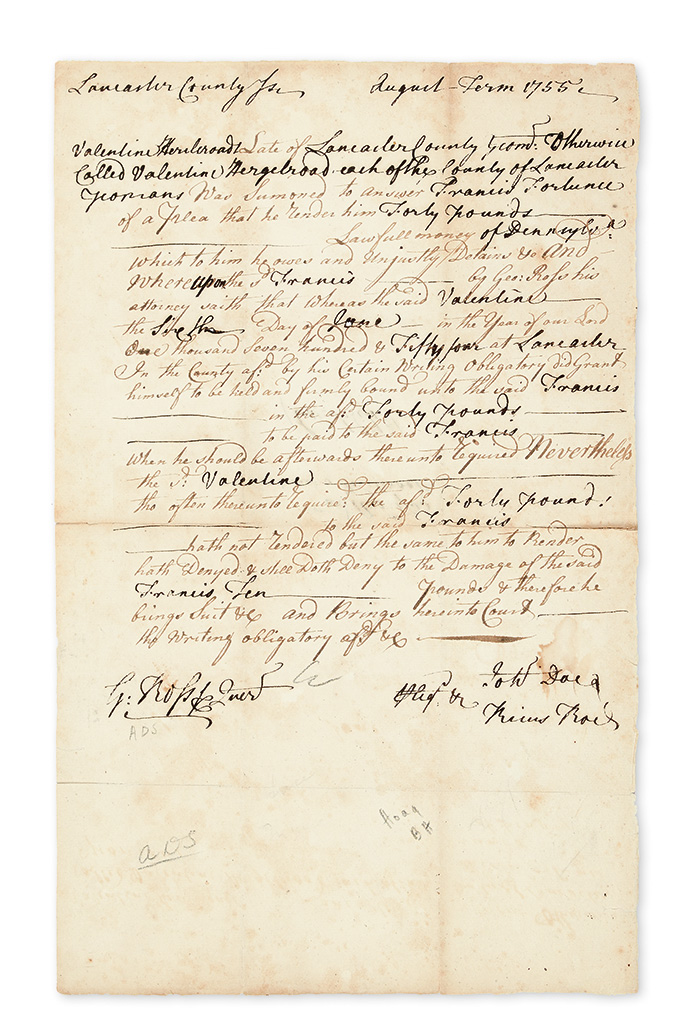 Lancaster County Ss August Term 1755
Valentine Late of Lancaster County yeom.ⁿ Otherwise
Called Valentine Hergelroad each of the County of Lancaster
yeomans Was Sumoned to answer Francis Fortunee
of a plea that he render him Forty pounds
Lawfull money of Pennsylv.ᵃ
Which to him he owes and Unjustly Detains &c And
Whereupon the s.ᵈ Francis by Geo: Ross his
attorney saith that Whereas the said Valentine
the Sixth Day of June in the Year of our Lord
One thousand Seven hundred & Fifty four at Lancaster
In the County af.ᵈ by his Certain Writing Obligatory did Grant
himself to be held and firmly bound unto the said Francis
in the af.ᵈ Forty pounds
to be paid to the said Francis
When he should be afterwards thereunto required Nevertheless
the s.ᵈ Valentine
tho often thereunto required the af.ᵈ Forty pounds
to the said Francis
hath not rendered but the same to him to Render
hath Denyed & still Doth Deny to the Damage of the said
Francis Ten pounds & therefore he
brings Suit &c and Brings here into Court
the Writing obligatory af.ᵈ &c
G: Ross Quer.ᵗ
Pleg.ˢ &c
Joħ Doe
Ricus Roe
ADS
Hoag
BH
ADS